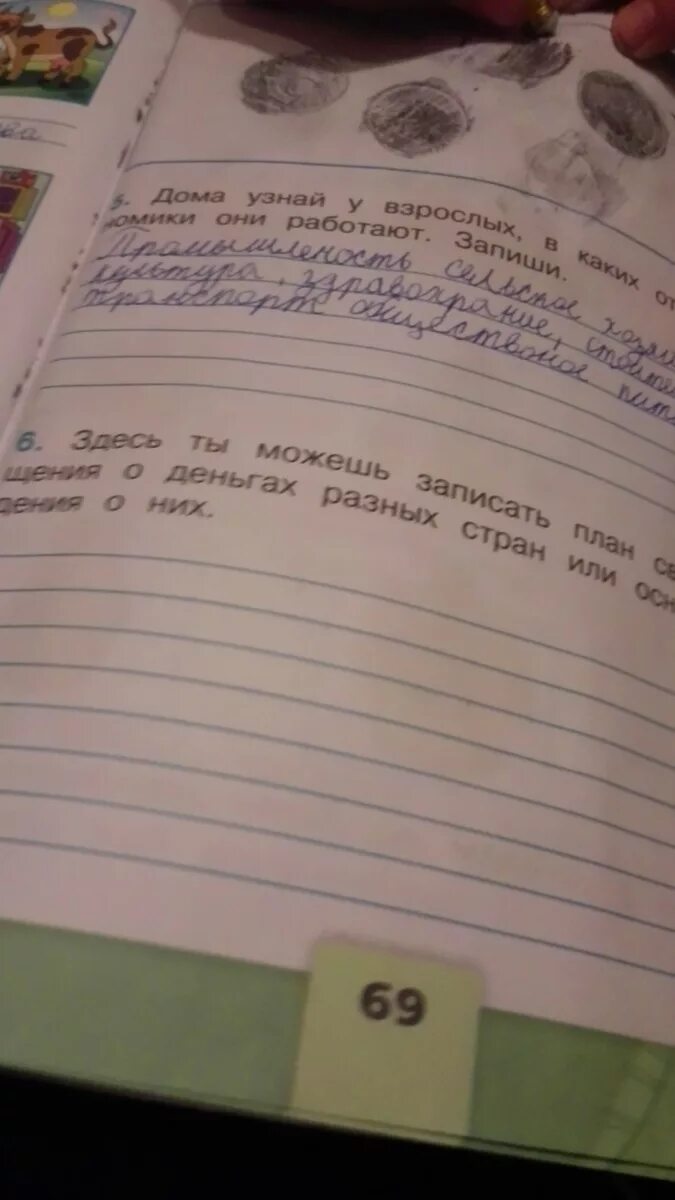 ва
5. Дома узнай у взрослых, в каких от
номики они работают. Запиши.
Промышленость сельское хозяй
культура, здравохрание, стоите
транспорт обществоное пит
6. Здесь ты можешь записать план св
щения о деньгах разных стран или осн
дения о них.
69